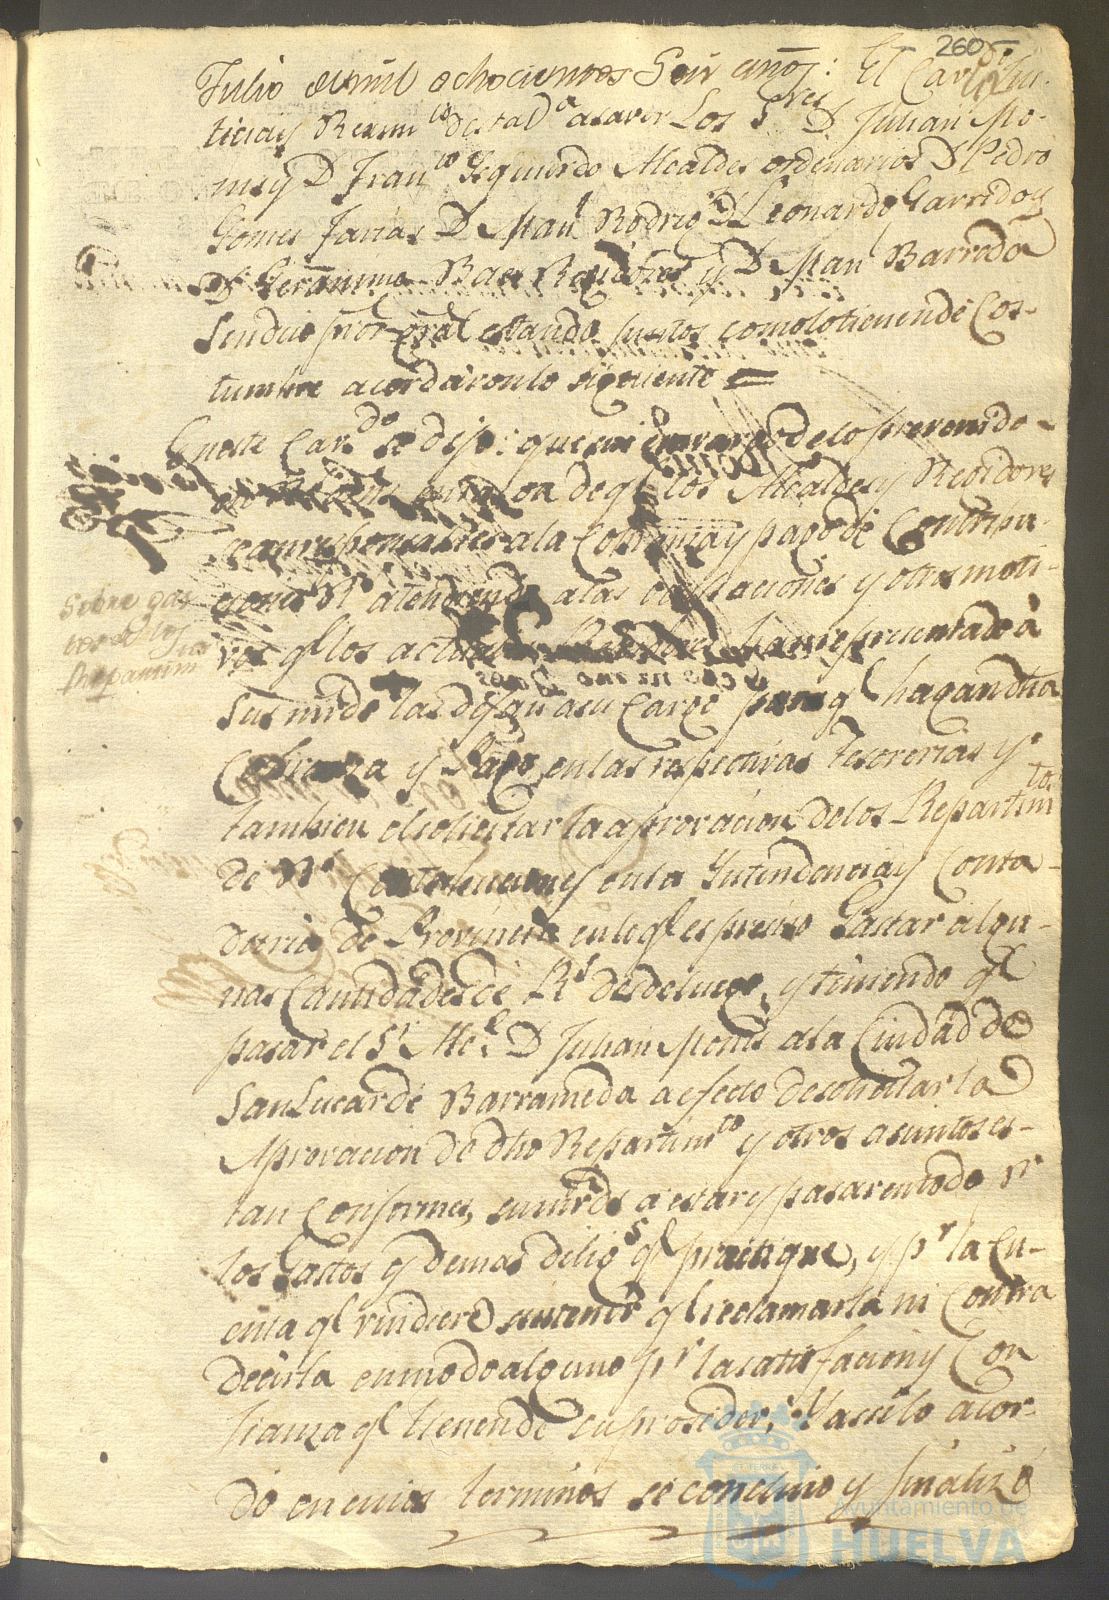 260
Julio de mil ochocientos Seis años: El Cav.do Jus-
ticia y Reximto. de esta Va. asaver Los Sres. Dn. Julian Mo-
nis y Dn. Franco. Ysquierdo Alcaldes ordinarios Dn. Pedro
Gomes Farias Dn. Manl. Rodrigs. Dn. Leonardo Garrido y
Dn. Geronimo Baes Regidores y Dn. Manl. Barreda
Sindico Pror. Gral. estando juntos como lo tienen de Cos-
tumbre acordaron lo siguiente =
En este Cavdo. se dijo: que sin embargo de lo prevenido
en de que los Alcaldes y Regidores
sean responsables a la Cobranza y pago de Contribu-
ciones Rs. atendiendo a las ocupaciones y otros moti-
vos ql. los actuales Regidores han representado à
Sus mrds. las dejan a su Cargo para ql. hagan dha
Cobranza y Pago en las respectivas Tesorerias y
tambien el solicitar la aprovacion de los Repartimtos.
de Rs. Contribuciones en la Yntendencia y Conta-
duria de Provincia en lo ql. es preciso Gastar algu-
nas Cantidades de Rs. desde luego, y teniendo ql.
pasar el Sr. Alce. Dn. Julian Monis a la Ciudad de
San Lucar de Barrameda a efecto de solicitar la
Aprovacion de dho Repartimto. y otros asuntos es-
tan Conformes, sus mrds. a estar y pasar en todo pr.
los Gastos y demas diligs. ql. practique, y pr. la Cu-
enta ql. rindiere sin tener ql. reclamarla ni Contra
decirla en modo alguno pr. la satisfacion y Con
fianza ql. tienen de su proseder; Y asi lo acor-
dó en cuios terminos se concluio y finalizó
Sobre gas
tos de los
Repartimtos
Ayuntamiento de
HUELVA